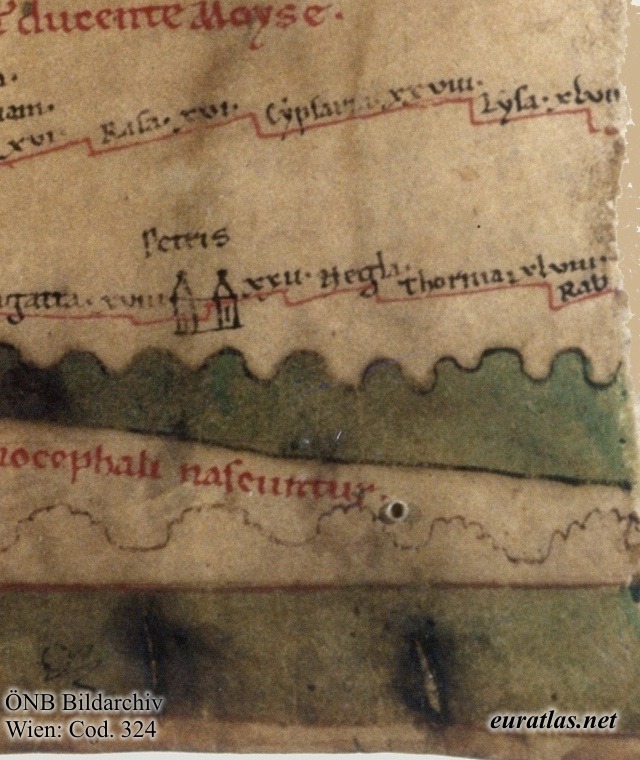 ducente Moyse.
xvi. Rasa. xvi. Cypsaria. xxviii. Lysa. xlviii
Petris
gatia. xviii. xxii. Hegla. Thorma. xlviii.
Rab
ocephali nascuntur.
ÖNB Bildarchiv
Wien: Cod. 324
euratlas.net